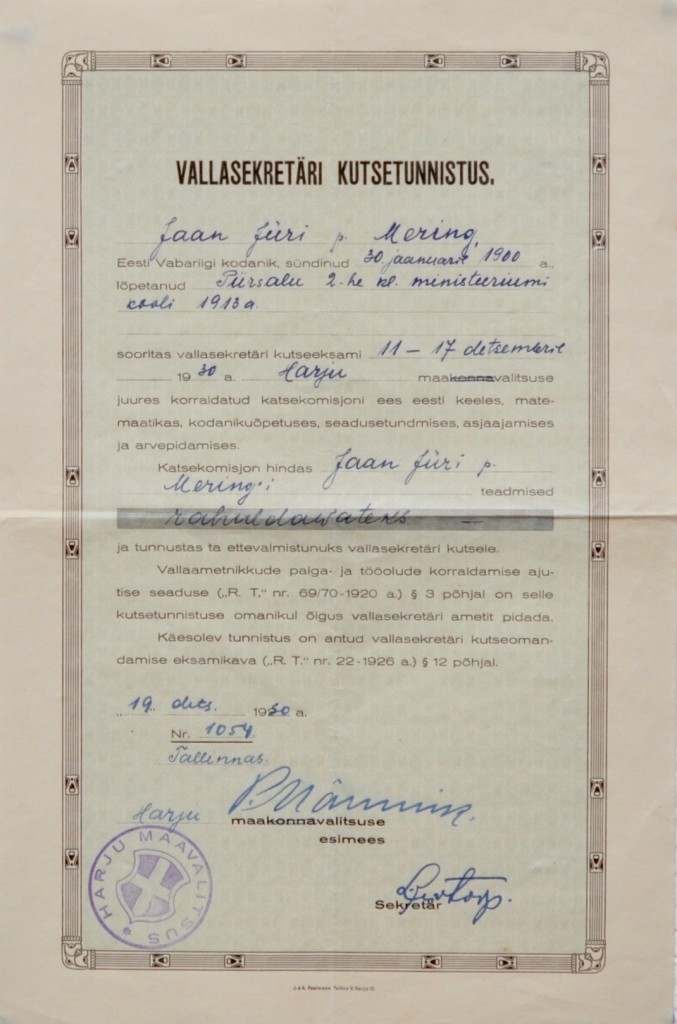 VALLASEKRETÄRI KUTSETUNNISTUS.
Jaan Jüri p. Mering,
Eesti Vabariigi kodanik, sündinud 30 jaanuaril 1900 a.,
lõpetanud Piirsalu 2-he kl. ministeeriumi
kooli 1913 a.
sooritas vallasekretäri kutseeksami 11 — 17 detsembril
1930 a. Harju maakonnavalitsuse
juures korraldatud katsekomisjoni ees eesti keeles, mate-
maatikas, kodanikuõpetuses, seadusetundmises, asjaajamises
ja arvepidamises.
Katsekomisjon hindas Jaan Jüri p.
Mering'i teadmised
rahuldawateks —
ja tunnustas ta ettevalmistunuks vallasekretäri kutsele.
Vallaametnikkude palga- ja tööolude korraldamise aju-
tise seaduse („R. T.“ nr. 69/70-1920 a.) § 3 põhjal on selle
kutsetunnistuse omanikul õigus vallasekretäri ametit pidada.
Käesolev tunnistus on antud vallasekretäri kutseoman-
damise eksamikava („R. T.“ nr. 22-1926 a.) § 12 põhjal.
„19“ dets. 1930 a.
Nr. 1054.
Tallennas
Harju maakonnavalitsuse
esimees
Sekretär
HARJU MAAVALITSUS